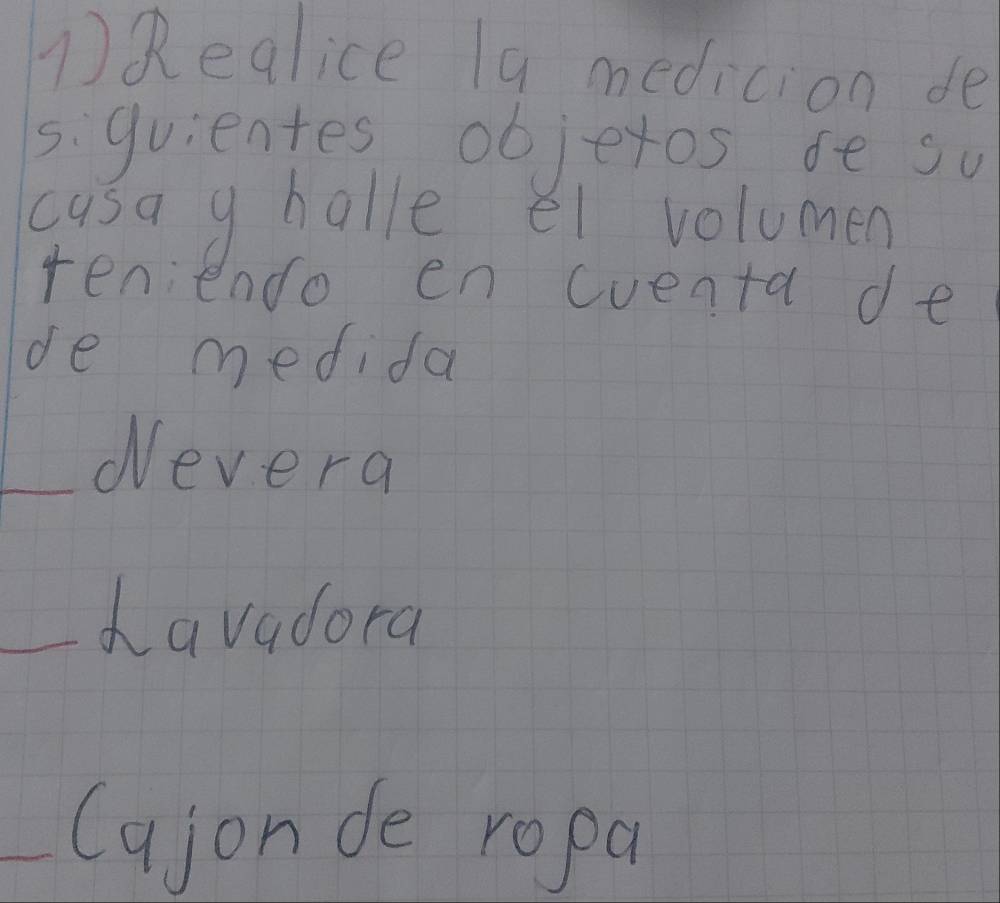 1) Realice la medicion de
siguientes objetos de su
casa y halle el volumen
teniendo en cuenta de
de medida
_ Nevera
_ Lavadora
_ Cajon de ropa